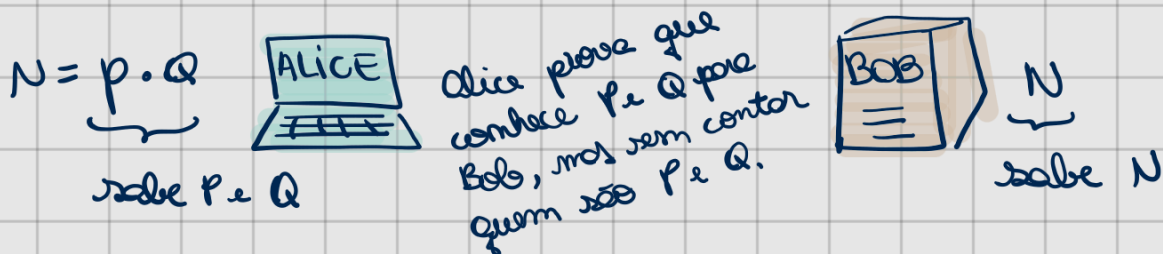 N = p . Q
sabe P e Q
ALICE
Alice prova que
conhece P e Q para
Bob, mas sem contar
quem são P e Q.
BOB
N
sabe N